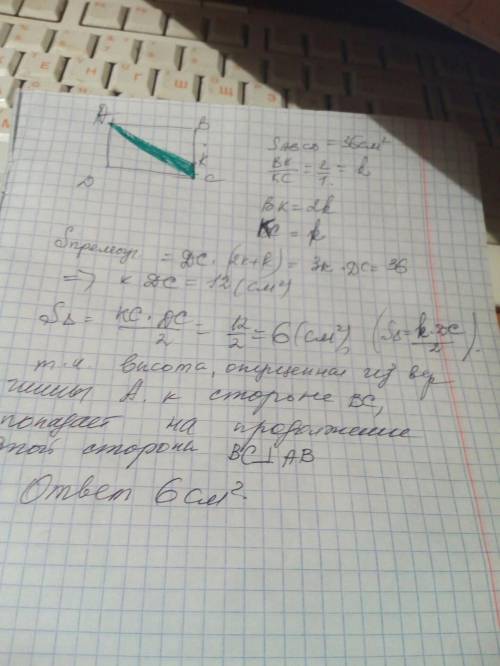 A B
K
D C
S ABCD = 36 см²
BK/KC = 2/1 = k
BK = 2k
KC = k
Sпрямоуг = DC · (2k+k) = 3k · DC = 36
=> k DC = 12 (см²)
S△ = KC · DC / 2 = 12/2 = 6 (см²), (S△ = k · DC / 2).
т.к. высота, опущенная из вер
шины A. к стороне BC,
попадает на продолжение
этой стороны BC ⊥ AB
Ответ 6 см².